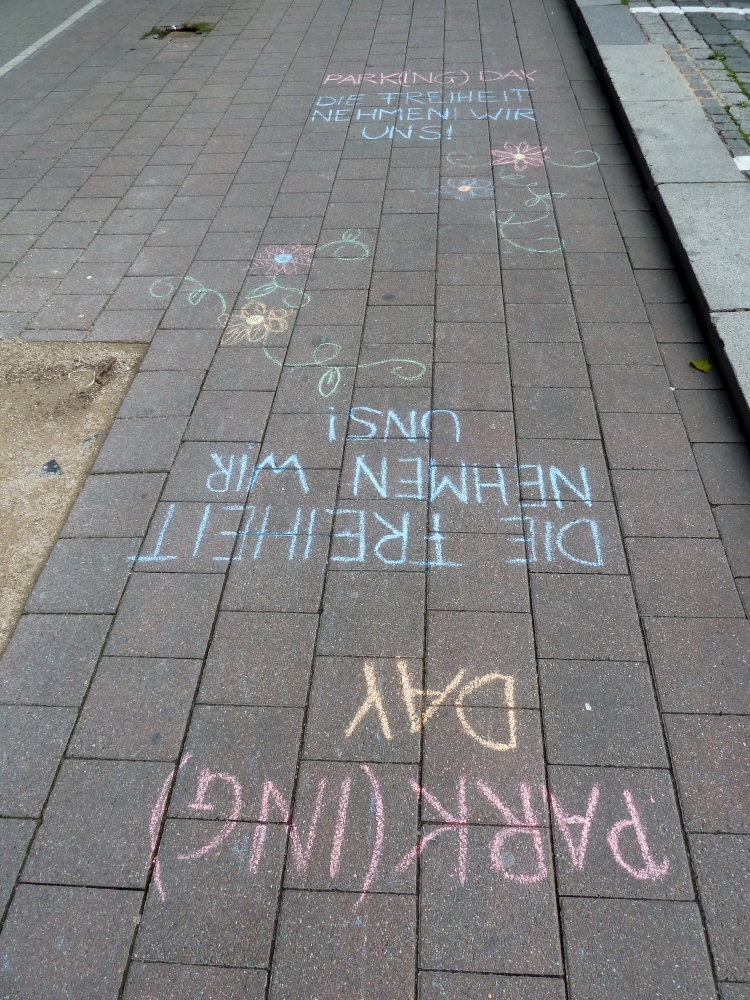 PARK(ING) DAY
DIE FREIHEIT
NEHMEN WIR
UNS!
PARK(ING)
DAY
DIE FREIHEIT
NEHMEN WIR
UNS!